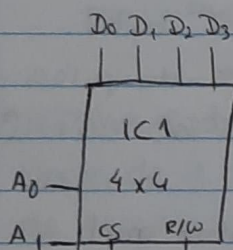 D0 D1 D2 D3
IC1
A0 4x4
A1 CS R/W